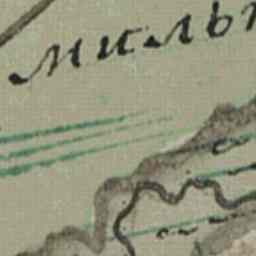 мильı